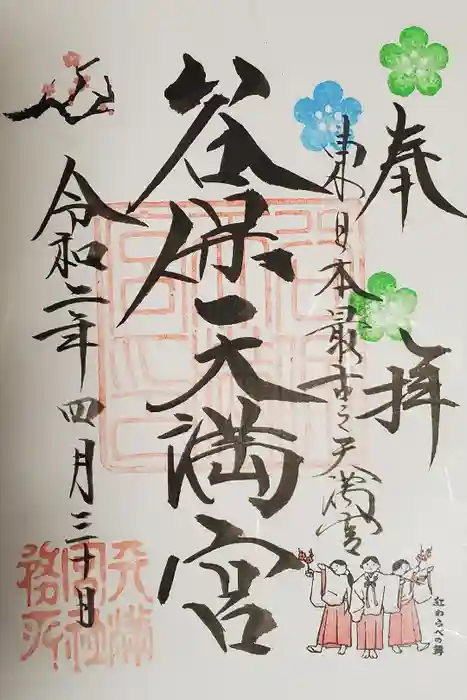 奉拝
東日本最古之天満宮
谷保天満宮
令和二年四月三十日
紅わらべの舞
天満宮社務所